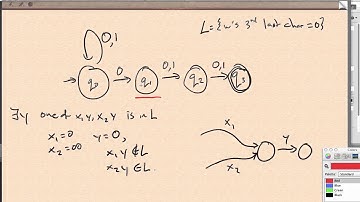 L = {w's 3rd last char = 0}
0,1
0 0,1 0,1
q0 q1 q2 q3
∃y one of x1y, x2y is in L
x1 = 0 y = 0,
x2 = 00 x1y ∉ L
x2y ∈ L.
x1 y
x2